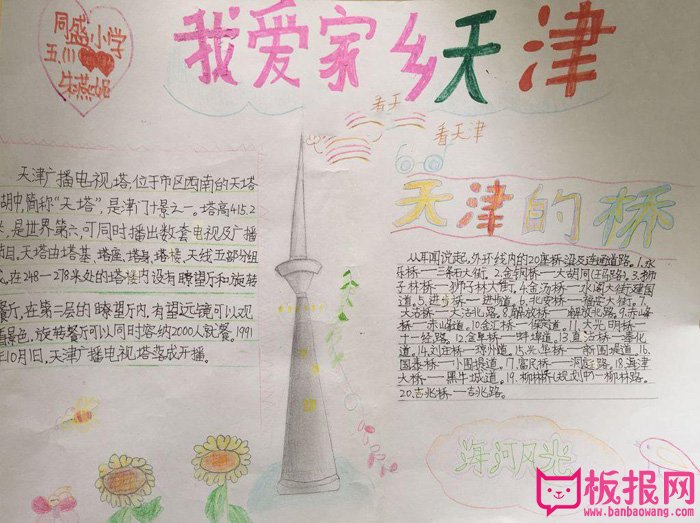 同盛小学
五.(1)
朱燕妮
我爱家乡天津
看天
看天津
天津广播电视塔,位于市区西南的天塔
湖中,简称"天塔",是津门十景之一。塔高415.2
米,是世界第六,可同时播出数套电视及广播
节目,天塔由塔基、塔座、塔身、塔楼、天线五部分组
成。在248—278米处的塔楼内设有瞭望厅和旋转
餐厅,在第二层的瞭望厅内,有望远镜可以观
看景色,旋转餐厅可以同时容纳2000人就餐。1991
年10月1日,天津广播电视塔落成开播。
天津的桥
外环线内的20座桥梁及连通道路。1.永
乐桥——三条石大街。2.金钢桥——大胡同 3.狮
子林桥——狮子林大街。4.金汤桥——水阁大街建国
道。5.进步桥——进步道。6.北安桥——福安大街。7.
大沽桥——大沽北路。8.解放桥——解放北路。9.赤峰
桥——赤峰道。10.金汇桥——保定道。11.大光明桥—
十一经路。12.金阜桥——蚌埠道。13.直沽桥——奉化
道。14.刘庄桥——琼州道。15.光华桥——新围堤道。16.
国泰桥——小围堤道。17.富民桥——路。18.海津
大桥——黑牛城道。19.柳林桥(规划中)—柳林路。
20.吉兆桥—吉兆路。
海河风光
板报网
www.banbaowang.com